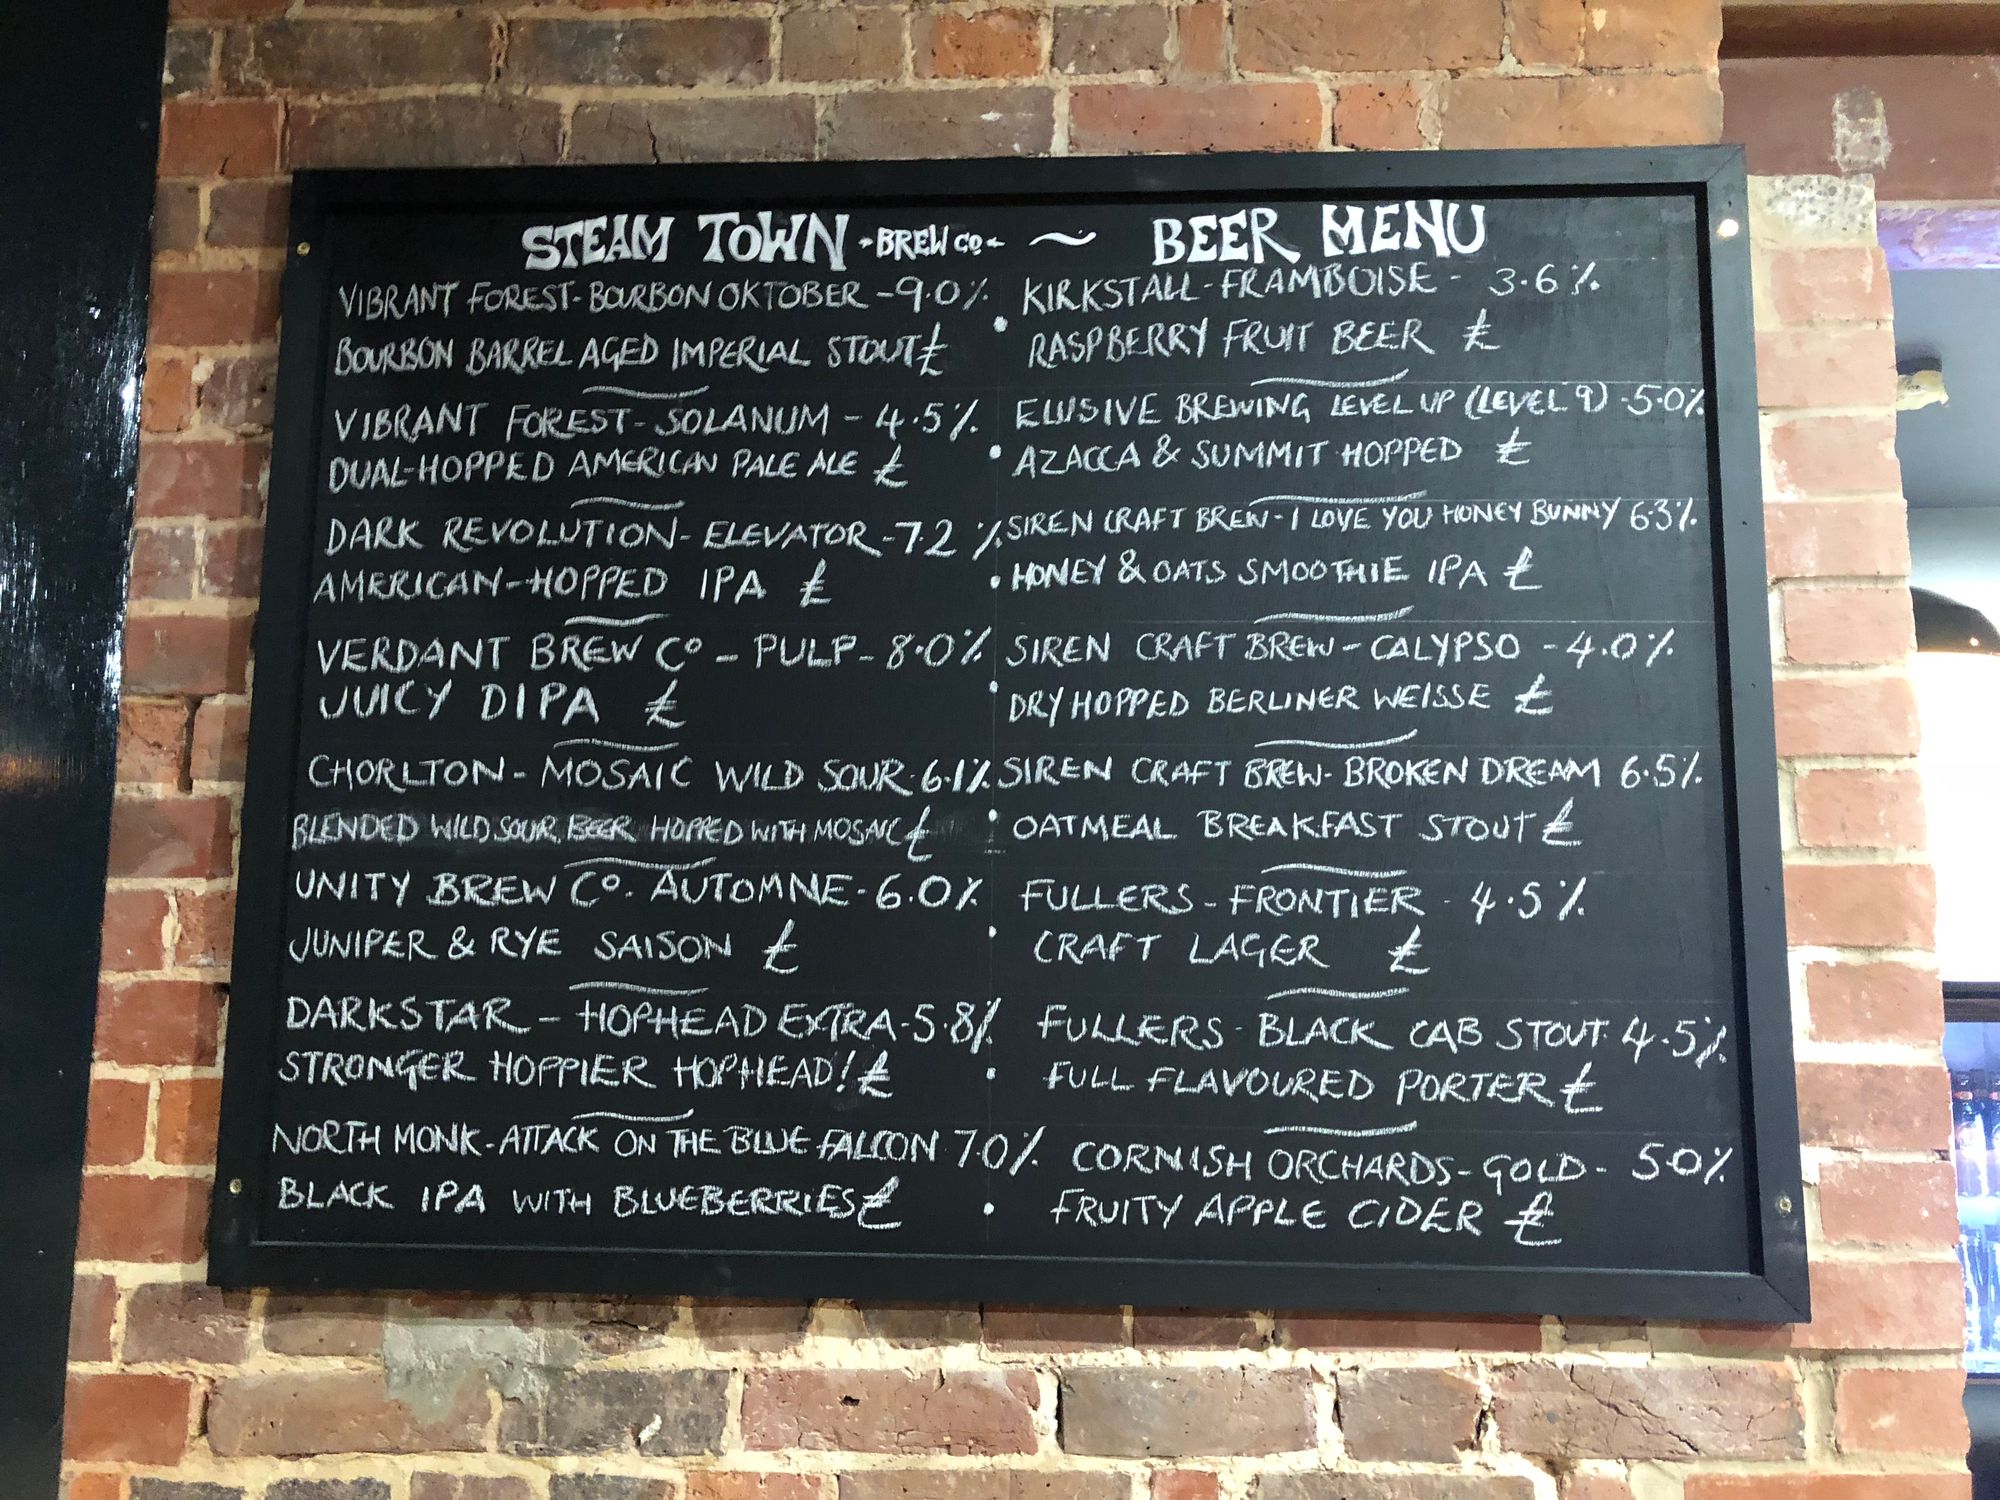 STEAM TOWN BREW CO ~ BEER MENU
VIBRANT FOREST - BOURBON OKTOBER - 9.0%
BOURBON BARREL AGED IMPERIAL STOUT £
VIBRANT FOREST - SOLANUM - 4.5%
DUAL-HOPPED AMERICAN PALE ALE £
DARK REVOLUTION - ELEVATOR - 7.2%
AMERICAN-HOPPED IPA £
VERDANT BREW Co - PULP - 8.0%
JUICY DIPA £
CHORLTON - MOSAIC WILD SOUR - 6.1%
BLENDED WILD, SOUR, BEER HOPPED WITH MOSAIC £
UNITY BREW Co. AUTOMNE - 6.0%
JUNIPER & RYE SAISON £
DARKSTAR - HOPHEAD EXTRA - 5.8%
STRONGER HOPPIER HOPHEAD! £
NORTH MONK - ATTACK ON THE BLUE FALCON 7.0%
BLACK IPA WITH BLUEBERRIES £
KIRKSTALL - FRAMBOISE - 3.6%
RASPBERRY FRUIT BEER £
ELUSIVE BREWING LEVEL UP (LEVEL 9) - 5.0%
AZACCA & SUMMIT HOPPED £
SIREN CRAFT BREW - I LOVE YOU HONEY BUNNY 6.3%
HONEY & OATS SMOOTHIE IPA £
SIREN CRAFT BREW - CALYPSO - 4.0%
DRY HOPPED BERLINER WEISSE £
SIREN CRAFT BREW - BROKEN DREAM 6.5%
OATMEAL BREAKFAST STOUT £
FULLERS - FRONTIER - 4.5%
CRAFT LAGER £
FULLERS - BLACK CAB STOUT. 4.5%
FULL FLAVOURED PORTER £
CORNISH ORCHARDS - GOLD - 5.0%
FRUITY APPLE CIDER £